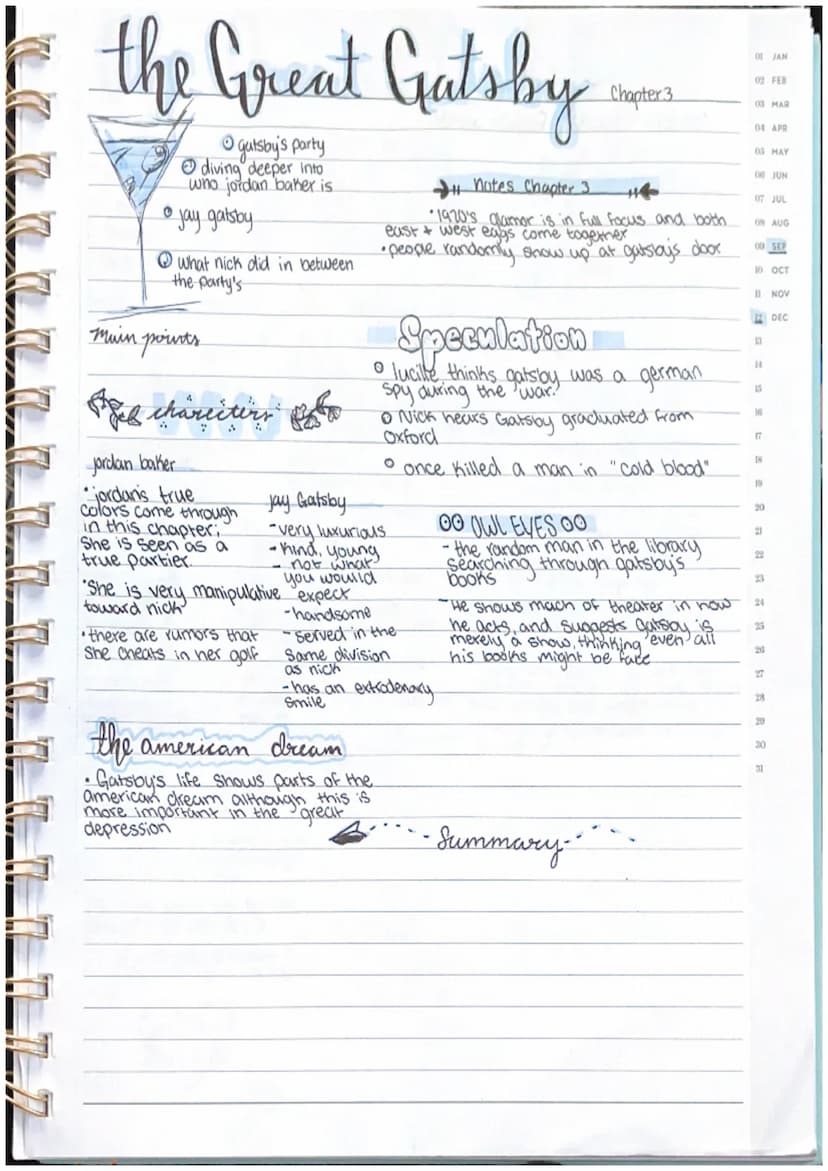 the Great Gatsby
Chapter 3
gatsby's party
diving deeper into
who jordan baker is
jay gatsby
what nick did in between
the party's
Main points
Notes Chapter 3
• 1920's glamor is in full focus and both
east + west eggs come together
• people randomly show up at gatsby's door
Speculation
lucille thinks gatsby was a german
spy during the war.
Nick hears Gatsby graduated from
Oxford
once killed a man in "cold blood"
charecters
jordan baker
• jordan's true
colors come through
in this chapter;
she is seen as a
true partier
• She is very manipulative
toward nick
• there are rumors that
she cheats in her golf
jay Gatsby
- very luxurious
- kind, young
- not what
you would
expect
- handsome
- served in the
same division
as nick
- has an extrodenary
smile
OWL EYES
- the random man in the library
searching through gatsby's
books
- He shows much of theater in how
he acts, and suggests Gatsby is
merely a show, thinking even all
his books might be fake
the american dream
• Gatsby's life shows parts of the
american dream although this is
more important in the great
depression
Summary
01 JAN
02 FEB
03 MAR
04 APR
05 MAY
06 JUN
07 JUL
08 AUG
09 SEP
10 OCT
11 NOV
12 DEC
13
14
15
16
17
18
19
20
21
22
23
24
25
26
27
28
29
30
31